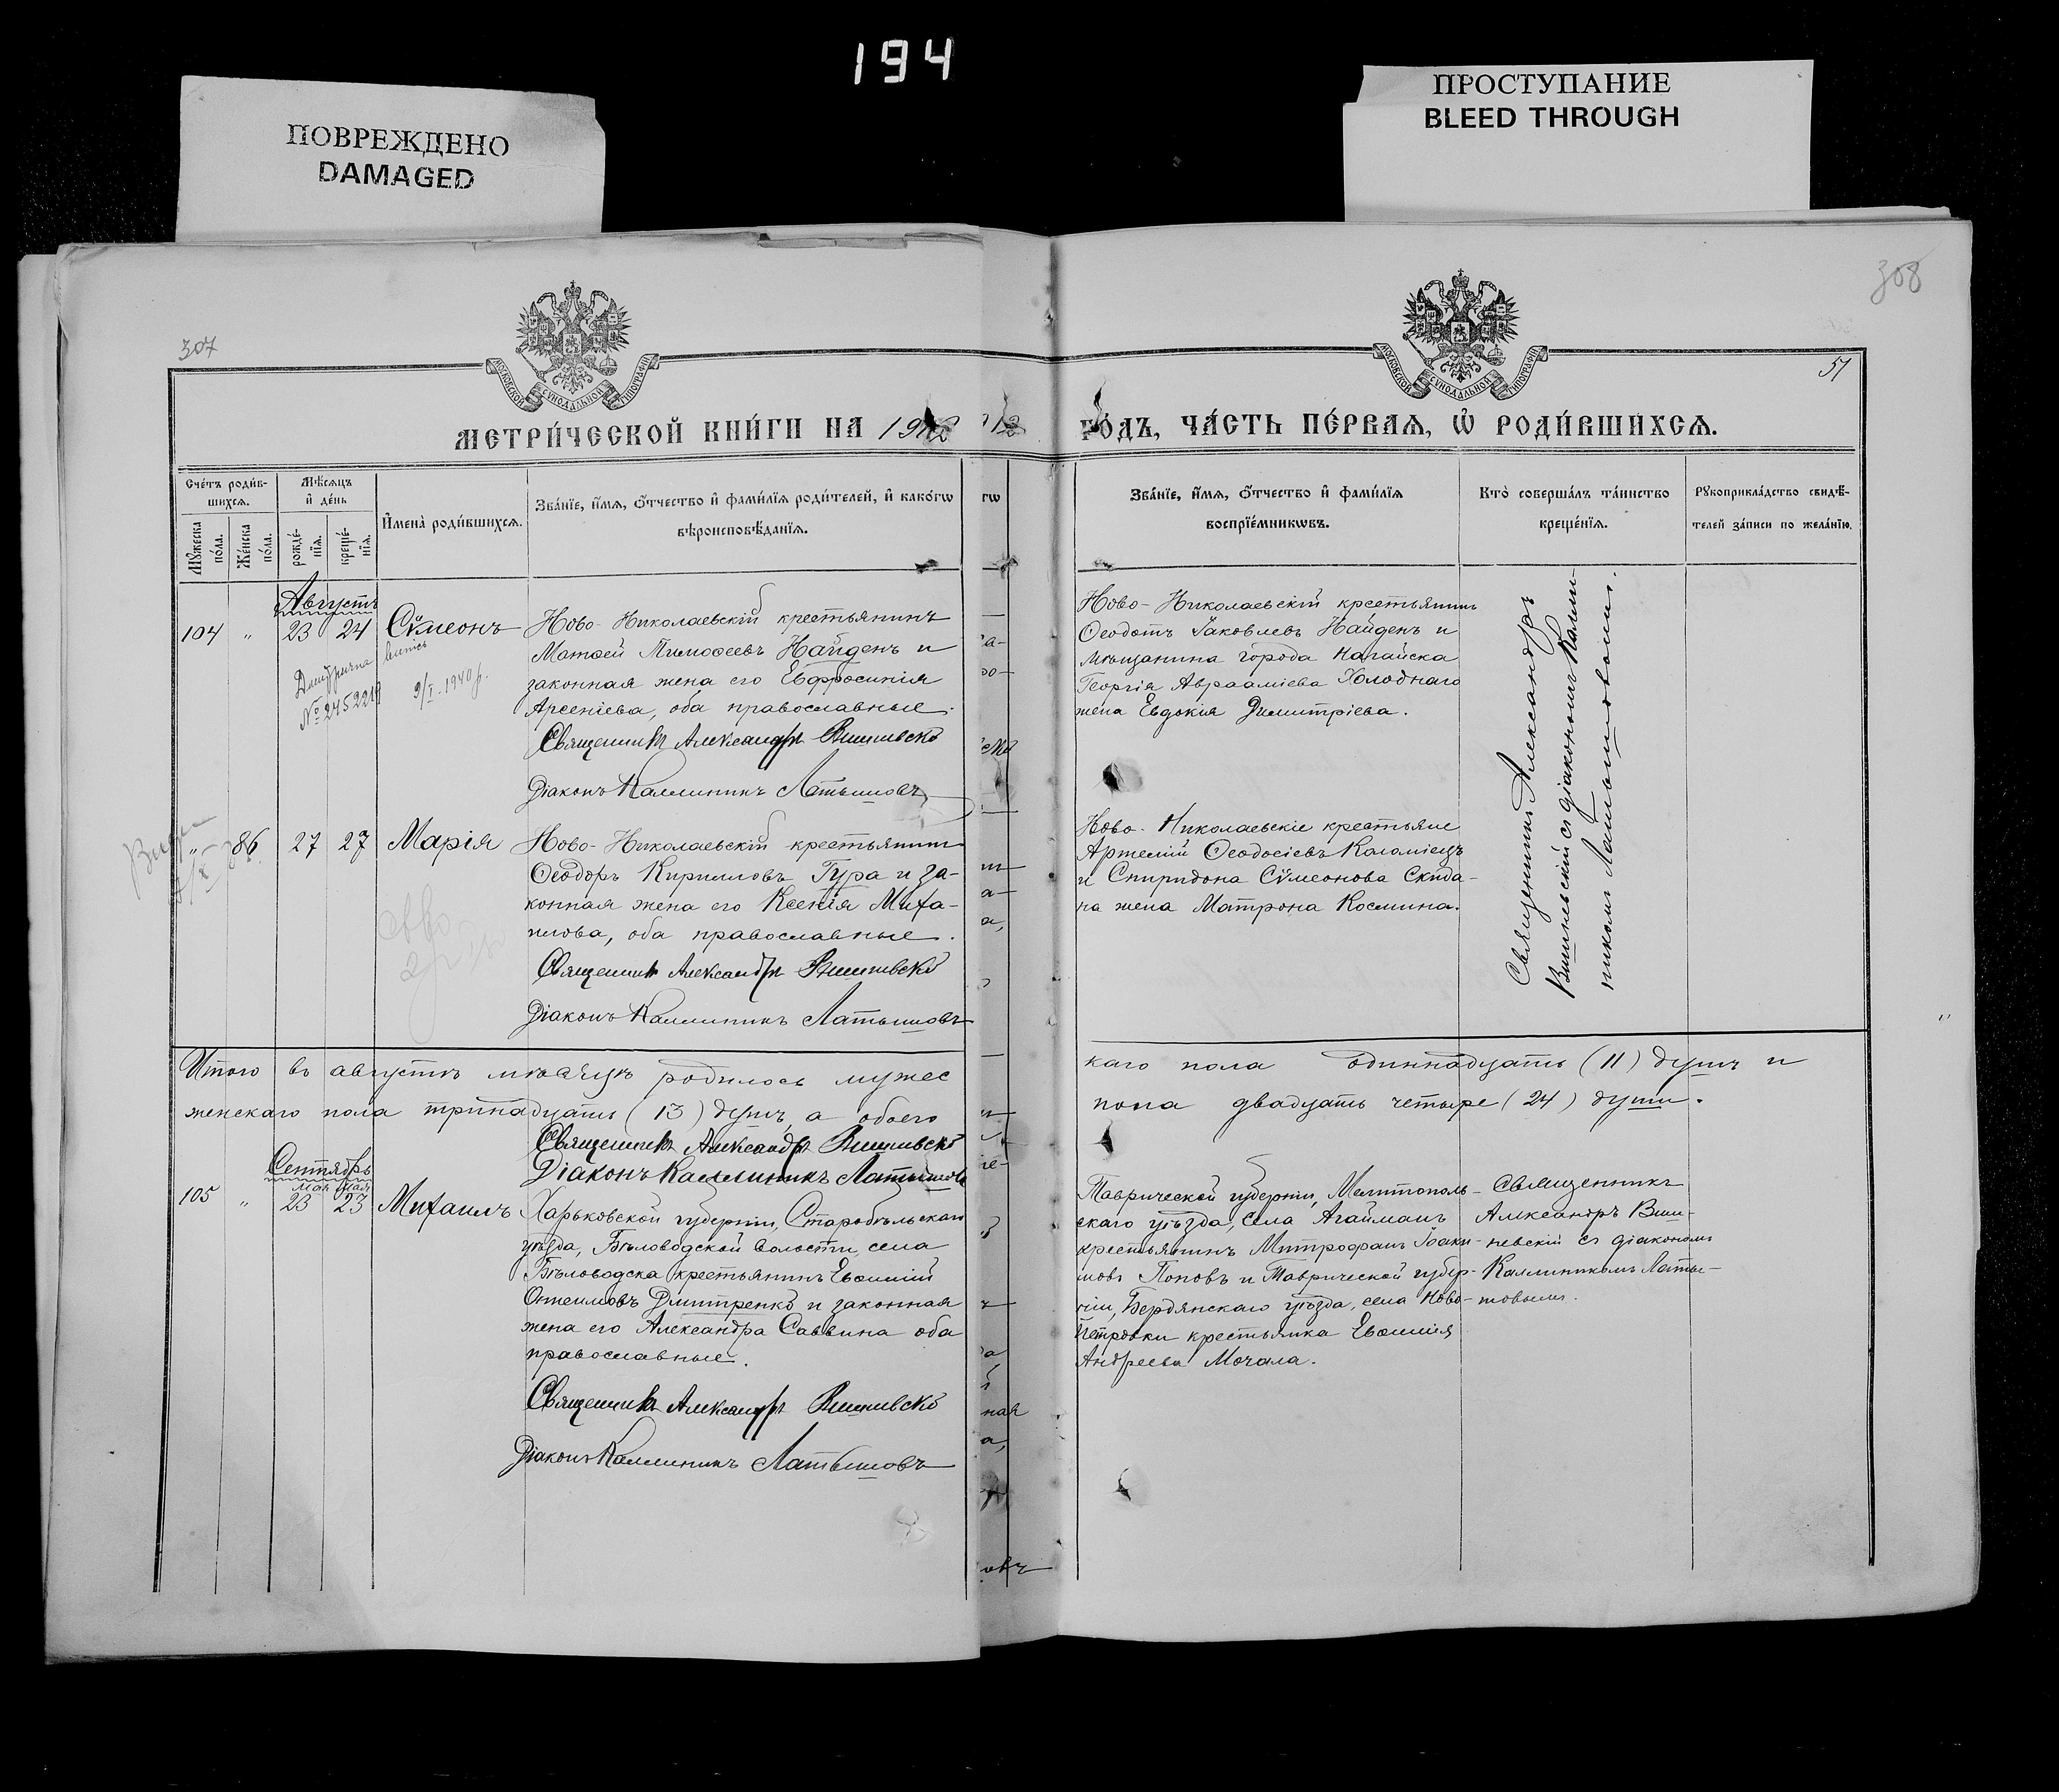 194
ПОВРЕЖДЕНО
DAMAGED
ПРОСТУПАНИЕ
BLEED THROUGH
307
308
51
МОСКОВСКОЙ СУНОДАЛЬНОЙ ТИПОГРАФІИ
МОСКОВСКОЙ СУНОДАЛЬНОЙ ТИПОГРАФІИ
МЕТРИ́ЧЕСКОЙ КНИ́ГИ НА 1912
12 ГО́ДЪ, ЧА́СТЬ ПЕ́РВАѦ, Ѡ҆ РОДИ́ВШИХСѦ.
Сче́тъ роди́в-
шихсѧ.
Мѣ́сѧцъ
и҆ де́нь
Мꙋ́жеска
по́ла.
Же́нска
по́ла.
рожде́-
нїѧ.
креще́-
нїѧ.
И҆мена̀ роди́вшихсѧ.
Зва́нїе, и҆́мѧ, ѻ҆́тчество и҆ фами́лїѧ роди́телей, и҆ како́гѡ
вѣроисповѣ́данїѧ.
гѡ
Зва́нїе, и҆́мѧ, ѻ҆́тчество и҆ фами́лїѧ
воспрїе́мникѡвъ.
Кто̀ соверша́лъ та́инство
креще́нїѧ.
Рꙋкоприкла́дство свидѣ́-
телей за́писи по жела́нїю.
Августъ
104 " 23 24 Сѵмеонъ
№ 2452219
9/I-1940 р.
Ново-Николаевскій крестьянинъ
Матѳей Тимоѳеевъ Найденъ и
законная жена его Евфросинія
Арсеніева, оба православные.
Священникъ Александръ Вишневскій
Діаконъ Каллиникъ Латышовъ
Ново-Николаевскій крестьянинъ
Ѳеодотъ Іаковлевъ Найденъ и
мѣщанина города Нагайска
Георгія Авраамiева Холоднаго
жена Евдокія Димитріева.
Священникъ Александръ
Вишневскій съ діакономъ Калли-
никомъ Латышовымъ.
" 86 27 27 Марія
Ново-Николаевскій крестьянинъ
Ѳеодоръ Кирилловъ Гура и за-
конная жена его Ксенія Миха-
илова, оба православные.
Священникъ Александръ Вишневскій
Діаконъ Каллиникъ Латышовъ
Ново-Николаевскіе крестьяне
Артемій Ѳеодосіевъ Коломіецъ
и Спиридона Сѵмеонова Скида-
на жена Матрона Космина.
Итого въ августѣ мѣсяцѣ родилось мужес
каго пола одиннадцать (11) душъ и
женскаго пола тринадцать (13) душъ, а обоего
пола двадцать четыре (24) души.
Священникъ Александръ Вишневскій
Діаконъ Каллиникъ Латышовъ
Сентябрь
мая мая
105 " 23 23 Михаилъ
Харьковской губерніи, Старобѣльскаго
уѣзда, Бѣловодской волости, села
Бѣловодска крестьянинъ Евѳимій
Дмитренко и законная
жена его Александра Саввина оба
православные.
Священникъ Александръ Вишневскій
Діаконъ Каллиникъ Латышовъ
Таврической губерніи, Мелитополь-
скаго уѣзда, села Агайманъ
крестьянинъ Митрофанъ Іоаки-
мовъ Поповъ и Таврической губер-
ніи, Бердянскаго уѣзда, села Ново-
петровки крестьянка Евѳимія
Андреева Мочала.
Священникъ
Александръ Виш-
невскій съ діакономъ
Каллиникомъ Латы-
шовымъ.